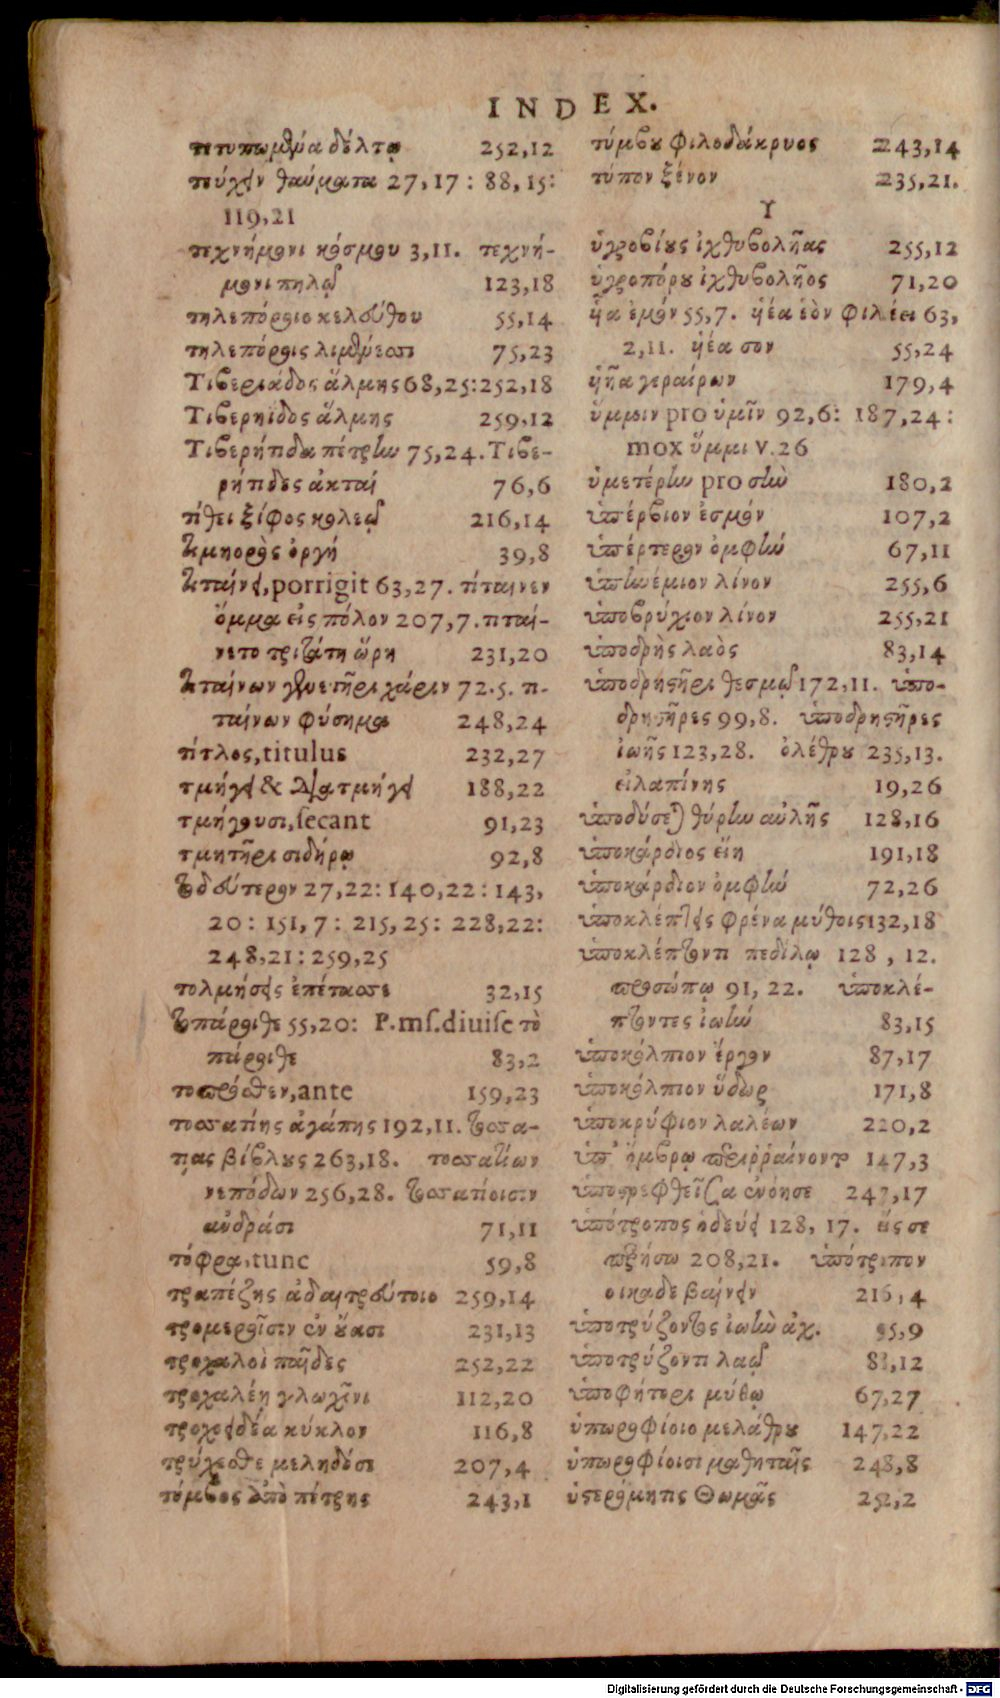 INDEX.
τετυπωμένα δέλτῳ 252,12
τεύχειν θαύματα 27,17: 88,15:
119,21
τεχνήμονι κόσμου 3,11. τεχνή-
μονι πηλῷ 123,18
τηλεπόροιο κελεύθου 55,14
τηλεπόροις λιμένεσσι 75,23
Τιβεριάδος ἅλμης 68,25: 252,18
Τιβερηίδος ἅλμης 259,12
Τιβερήϊδα πέτρην 75,24. Τιβε-
ρήϊδες ἀκταί 76,6
τίθει ξίφος κολεῷ 216,14
τιμήορος ὀργή 39,8
τιταίνει, porrigit 63,27. τίταινεν
ὄμμα εἰς πόλον 207,7. τιταί-
νετο τριτάτη ὥρη 231,20
τιταίνων γενετῆρι χάριν 72.5. τι-
ταίνων φύσημα 248,24
τίτλος, titulus 232,27
τμήγει & διατμήγει 188,22
τμήγουσι, secant 91,23
τμητῆρι σιδήρῳ 92,8
τοδεύτερον 27,22: 140,22: 143,
20: 151,7: 215,25: 228,22:
248,21: 259,25
τολμήσεις ἐπέτασσε 32,15
τοπάροιθε 55,20: P. ms. divise τὸ
πάροιθε 83,2
τοπρόσθεν, ante 159,23
τοσσατίης ἀγάπης 192,11. τοσσα-
τίας βίβλους 263,18. τοσσατίων
νεπόδων 256,28. τοσσατίοισιν
ἀνδράσι 71,11
τόφρα, tunc 59,8
τραπέζης ἀδαιτρεύτοιο 259,14
τρομεροῖσιν ἐν οὔασι 231,13
τροχαλοὶ παῖδες 252,22
τροχαλέῃ γλωχῖνι 112,20
τροχοειδέα κύκλον 116,8
τρύχεσθε μεληδόσι 207,4
τύμβος ἀπὸ πέτρης 243,1
τύμβου φιλοδάκρυος 243,14
τύπον ξένον 235,21.
Υ
ὑγροβίους ἰχθυβολῆας 255,12
ὑγροπόρου ἰχθυβολῆος 71,20
ὑῖα ἐμόν 55,7. ὑέα ἑὸν φιλέει 63,
2,11. ὑέα σον 55,24
ὑῆα γεραίρων 179,4
ὕμμιν pro ὑμῖν 92,6: 187,24:
mox ὕμμι v.26
ὑμετέρην pro σὴν 180,2
ὑπέρβιον ἐσμόν 107,2
ὑπέρτερον ὀμφήν 67,11
ὑπηνέμιον λίνον 255,6
ὑποβρύχιον λίνον 255,21
ὑποδρὴς λαὸς 83,14
ὑποδρηστῆρι θεσμῷ 172,11. ὑπο-
δρηστῆρες 99,8. ὑποδρηστῆρες
ἰωῆς 123,28. ὀλέθρου 235,13.
εἰλαπίνης 19,26
ὑποδύσεται θύρην αὐλῆς 128,16
ὑποκάρδιος ἔῃ 191,18
ὑποκάρδιον ὀμφήν 72,26
ὑποκλέπτεις φρένα μύθοις 132,18
ὑποκλέπτοντι πεδίλῳ 128,12.
προσώπῳ 91,22. ὑποκλέ-
πτοντες ἰωήν 83,15
ὑποκόλπιον ἔργον 87,17
ὑποκόλπιον ὕδωρ 171,8
ὑποκρύφιον λαλέων 220,2
ὑπ' ὄμβρῳ περιῤῥαίνοντο 147,3
ὑποστρεφθεῖσα ἐνόησε 247,17
ὑπότροπος ὁδεύει 128,17. εἰς σε
πρήσω 208,21. ὑπότροπον
οἴκαδε βαίνειν 216,4
ὑποτρύζοντος ἰωὴν ἀχ. 95,9
ὑποτρύζοντι λαῷ 83,12
ὑποφήτορι μύθῳ 67,27
ὑπωροφίοιο μελάθρου 147,22
ὑπωροφίοισι μαθηταῖς 248,8
ὑστερόμητις Θωμᾶς 252,2
Digitalisierung gefördert durch die Deutsche Forschungsgemeinschaft - DFG